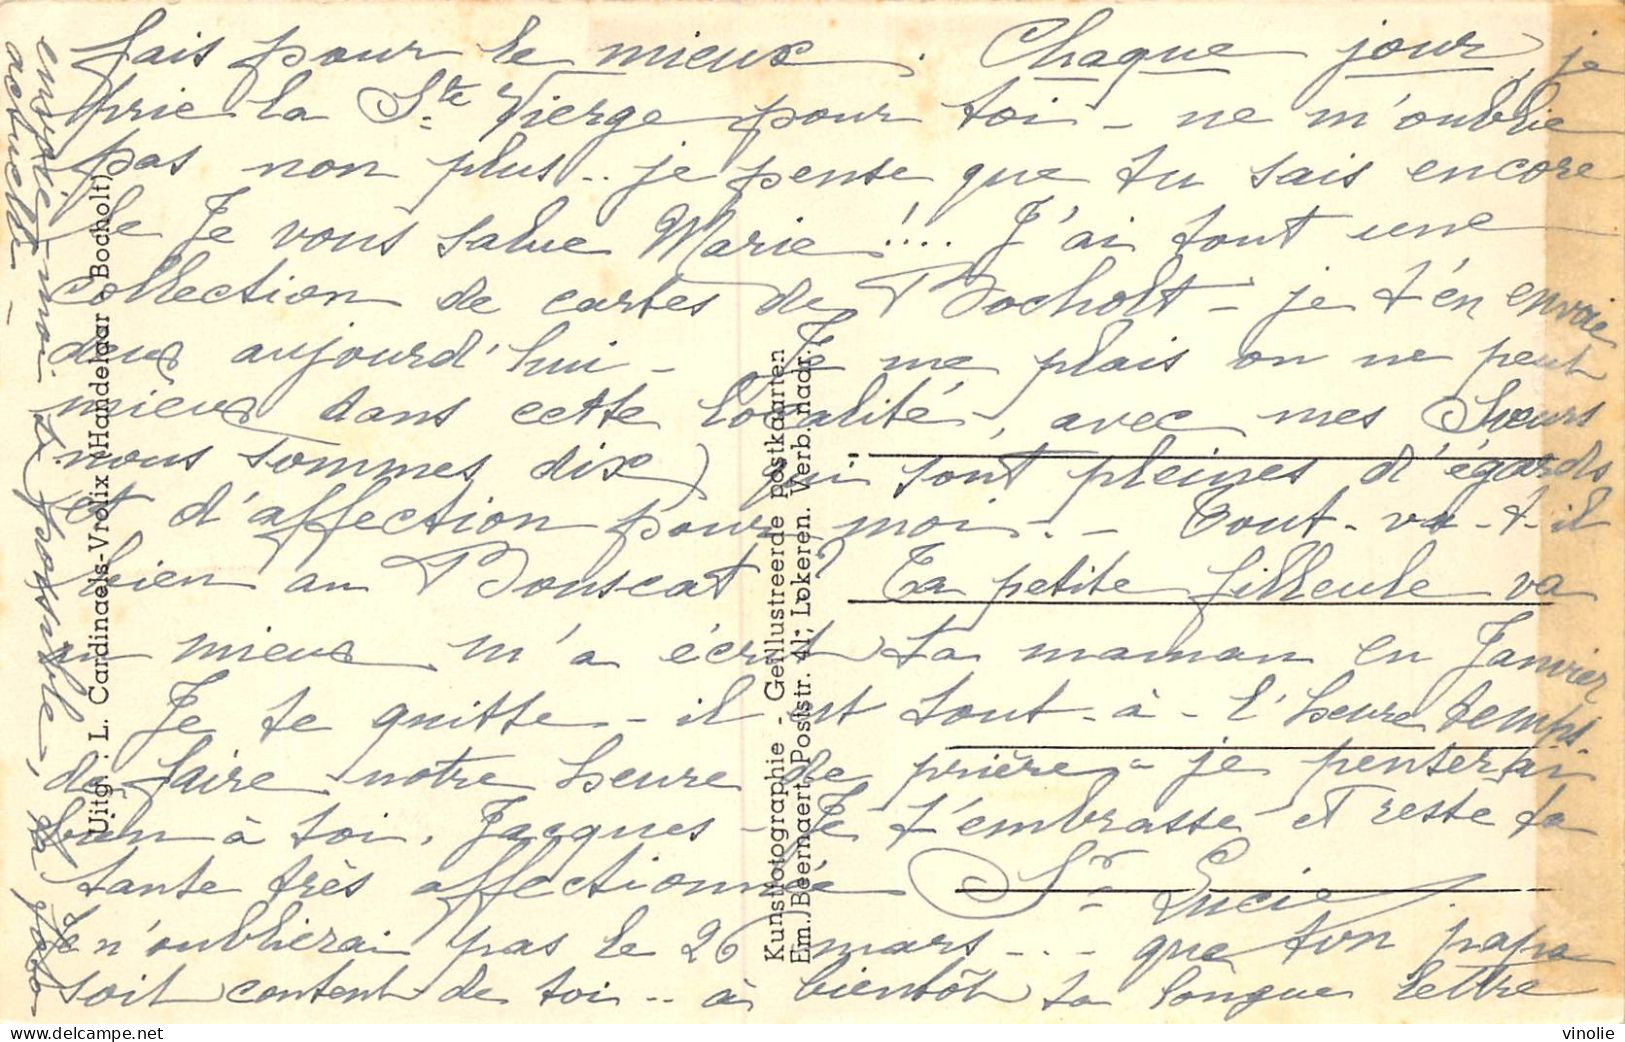 fais pour le mieux. Chaque jour, je
prie la Ste Vierge pour toi - ne m'oublie
pas non plus.. je pense que tu sais encore
le Je vous salue Marie!.... J'ai tout une
collection de cartes de Bocholt - je t'en envoie
deux aujourd'hui - Je me plais on ne peut
mieux dans cette localité, avec mes Soeurs
nous sommes dix) qui sont pleines d'égards
et d'affection pour moi. - Tout-va-t-il
bien au Bouscat? Ta petite filleule va
au mieux m'a écrit ta maman en Janvier
Je te quitte - il est tout-à-l'heure temps
de faire notre heure de prière - je penserai
bien à toi, Jacques - Je t'embrasse et reste ta
tante très affectionnée Sr Lucie.
Je n'oublierai pas le 26 mars... que ton papa
soit content de toi.. à bientôt ta longue lettre
envoie-moi si possible, ta photo
actuelle -
Uitgr : L. Cardinaels-Vrolix (Handelaar - Bocholt)
Kunstfotographie - Geïllustreerde postkaarten
Em. Beernaert, Poststr. 41, Lokeren. Verb. nadr.
vinolie